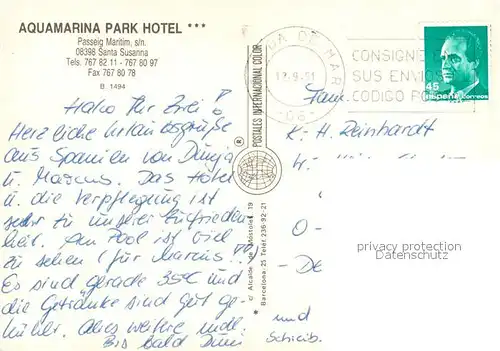 AQUAMARINA PARK HOTEL ***
Passeig Maritim, s/n.
08398 Santa Susanna
Tels. 767 82 11 - 767 80 97
Fax 767 80 78
B. 1494
Hallo Ihr Zwei!
Herzliche Urlaubsgrüße
aus Spanien von Dunja
u. Marcus. Das Hotel
u. die Verpflegung ist
sehr zu unserer Zufrieden-
heit. Am Pool ist viel
zu sehen (für Marcus!!)
Es sind gerade 35°C und
die Getränke sind gut ge-
kühlt. Alles weitere mdl.
Bis bald
und
Schreib.
POSTALES INTERNACIONAL COLOR
®
c/ Alcalde de Móstoles, 19
* Barcelona-25 Telef. 236-92-21
DE MAR
12-9-91
-06-
CONSIGNE
SUS ENVIOS
CODIGO PO
45
España Correos
Fam.
K.-H. Reinhardt
W-
O-
De
privacy protection
Datenschutz